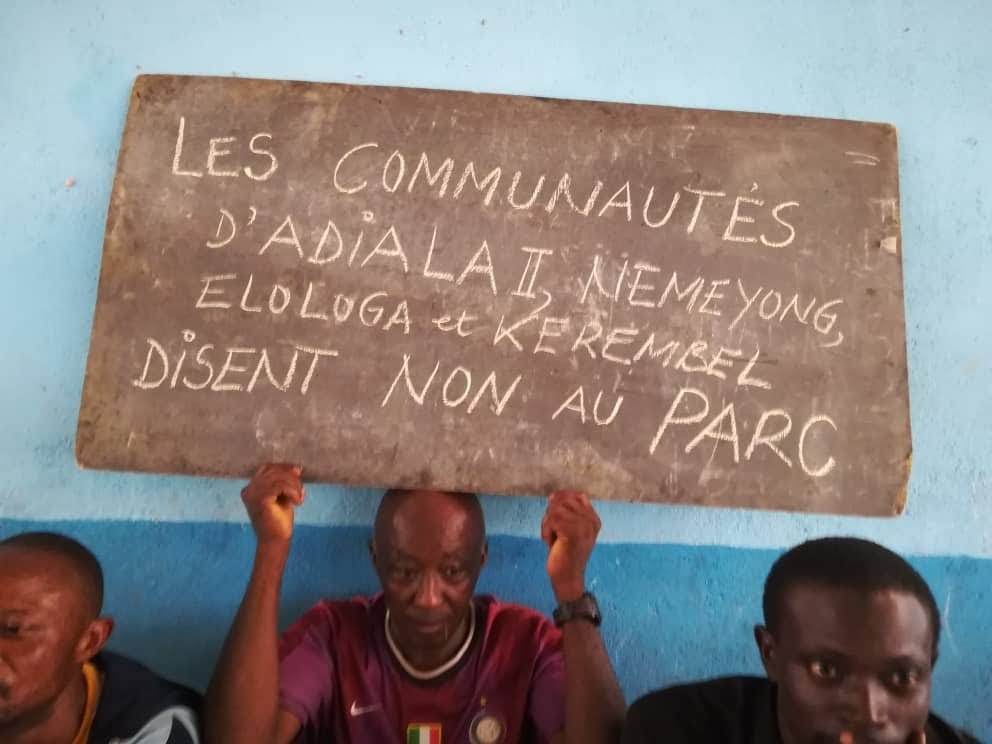 LES COMMUNAUTÉS
D'ADIALA II, NEMEYONG,
ELOLOGA et KEREMBEL
DISENT NON AU PARC